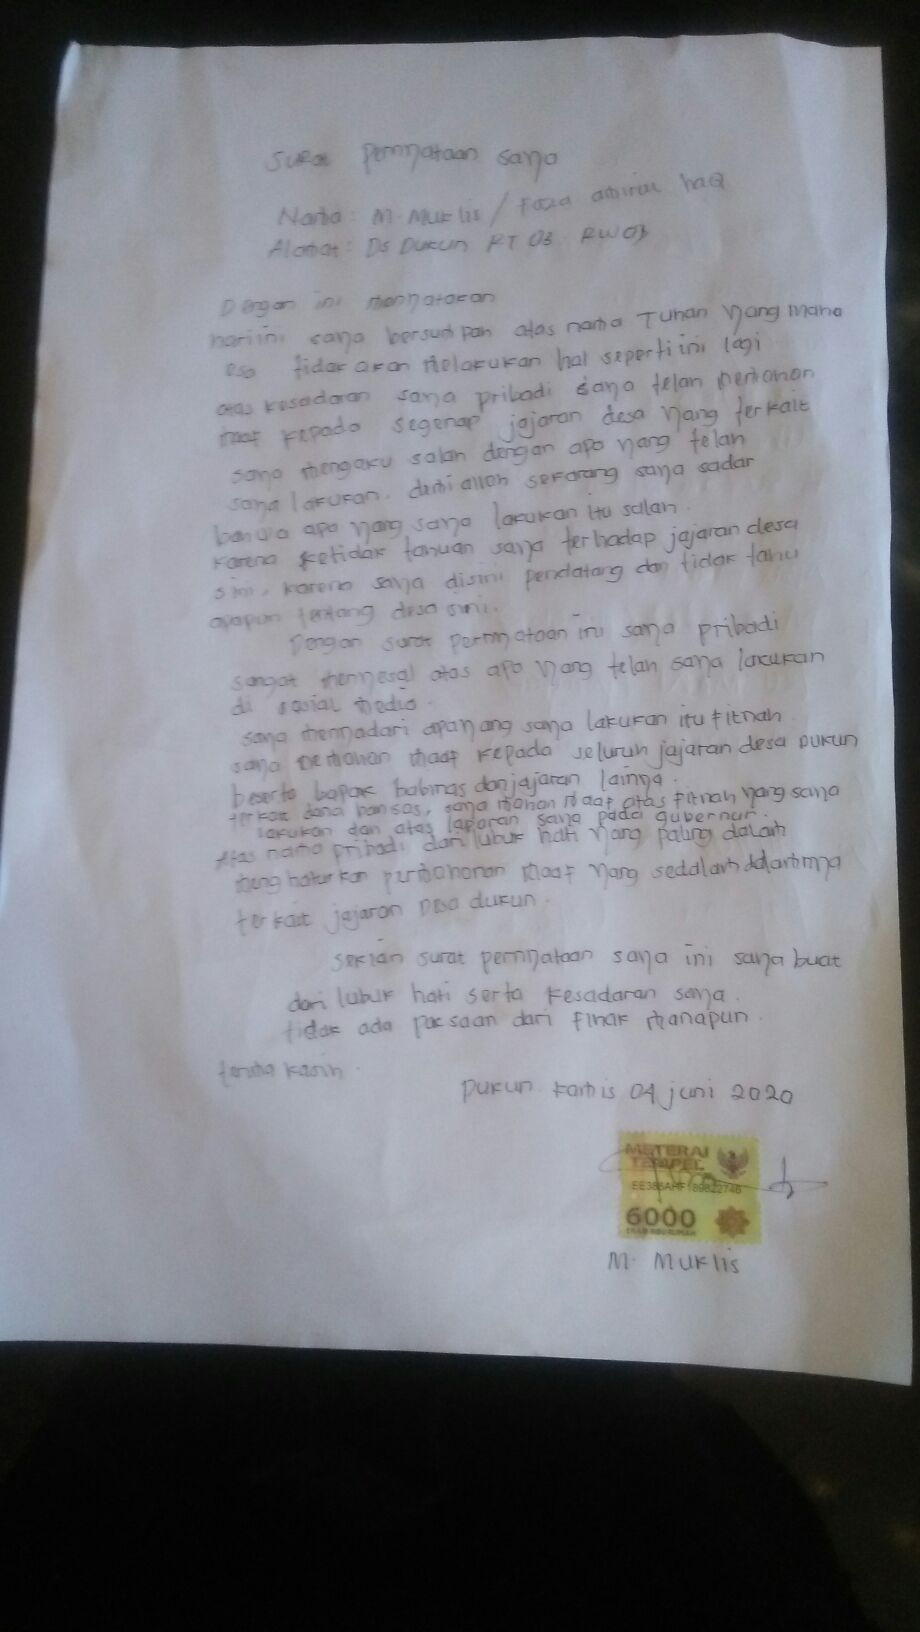 Surat pernyataan saya
Nama : M. Muklis / Faza amirul haq
Alamat : Ds Dukun RT 03 RW 03
Dengan ini menyatakan
hari ini saya bersumpah atas nama Tuhan yang maha
esa tidak akan melakukan hal seperti ini lagi
atas kesadaran saya pribadi saya telah memohon
maaf kepada segenap jajaran desa yang terkait
saya mengaku salah dengan apa yang telah
saya lakukan. demi allah sekarang saya sadar
bahwa apa yang saya lakukan itu salah.
karena ketidak tahuan saya terhadap jajaran desa
sini, karena saya disini pendatang dan tidak tahu
apapun tentang desa sini.
Dengan surat pernyataan ini saya pribadi
sangat menyesal atas apa yang telah saya lakukan
di sosial media.
saya menyadari apa yang saya lakukan itu fitnah
saya memohon maaf kepada seluruh jajaran desa Dukun
beserta bapak babinsa dan jajaran lainya.
terkait dana bansos, saya mohon maaf atas fitnah yang saya
lakukan dan atas laporan saya pada gubernur.
Atas nama pribadi dari lubuk hati yang paling dalam
menghaturkan permohonan maaf yang sedalam dalamnya
terkait jajaran Desa dukun.
sekian surat pernyataan saya ini saya buat
dari lubuk hati serta kesadaran saya.
tidak ada paksaan dari fihak manapun.
terima kasih.
Dukun kamis 04 juni 2020
METERAI
TEMPEL
6000
ENAM RIBU RUPIAH
M. Muklis